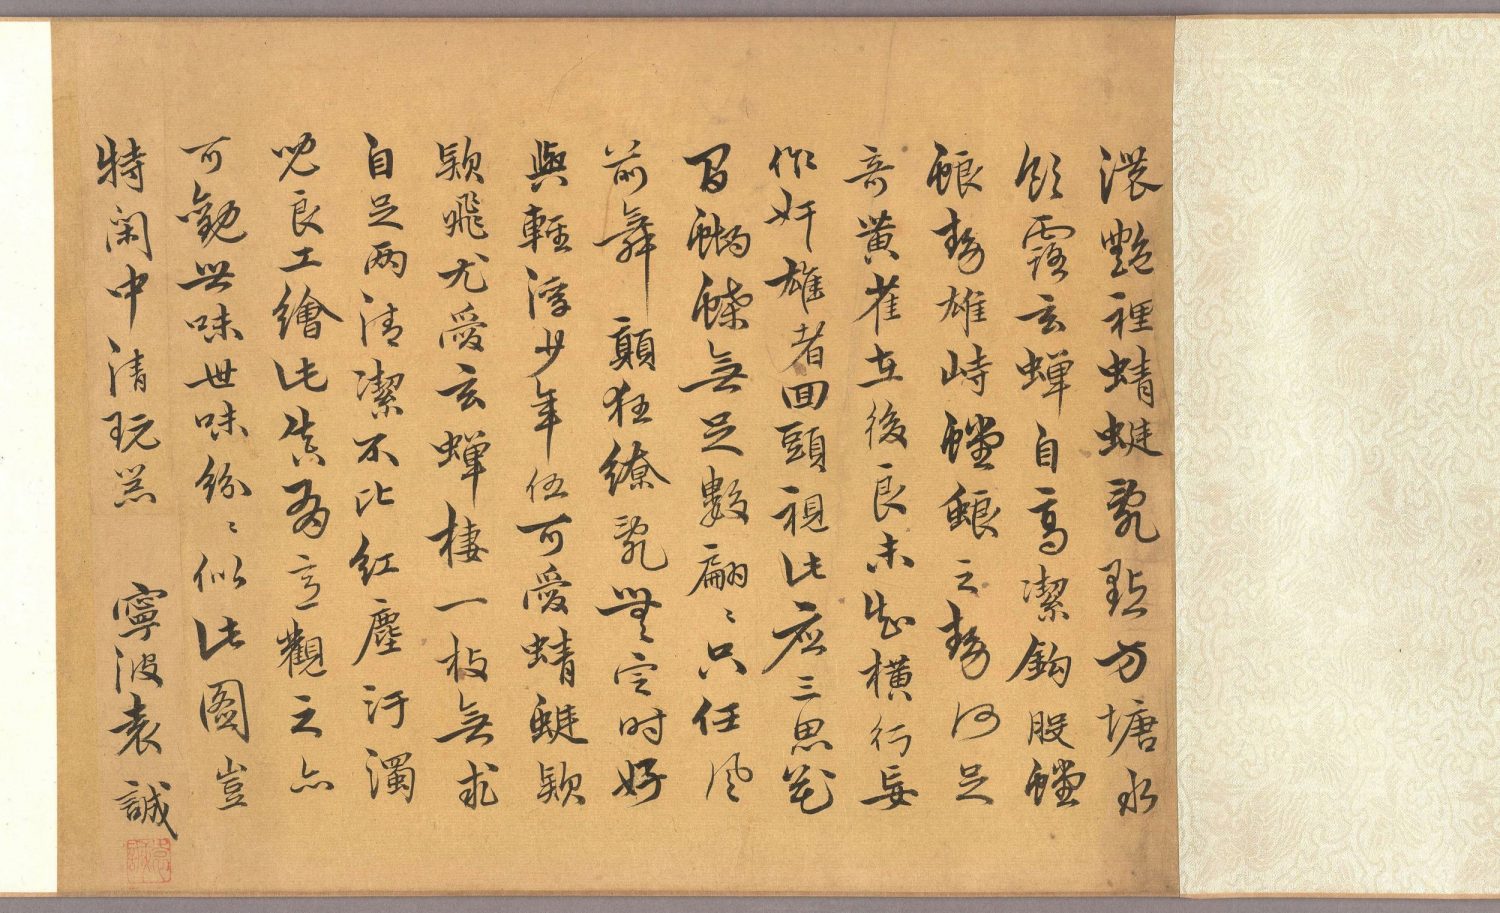 濃艷裡蜻蜓亂點方塘水
飲露玄蟬自高潔鉤股螳
螂勢雄峙螳螂之勢何足
奇黃雀在後良未知橫行妄
作奸雄者回頭視此應三思花
間蝴蝶無足數翩〻只任風
前舞顛狂繚亂無定時好
與輕浮少年伍可愛蜻蜓款
款飛尤愛玄蟬棲一枝無求
自足兩清潔不比紅塵汙濁
兒良工繪此真有意觀之亦
可勸世味世味紛〻似此圖豈
特閑中清玩器 寧波袁誠
袁誠